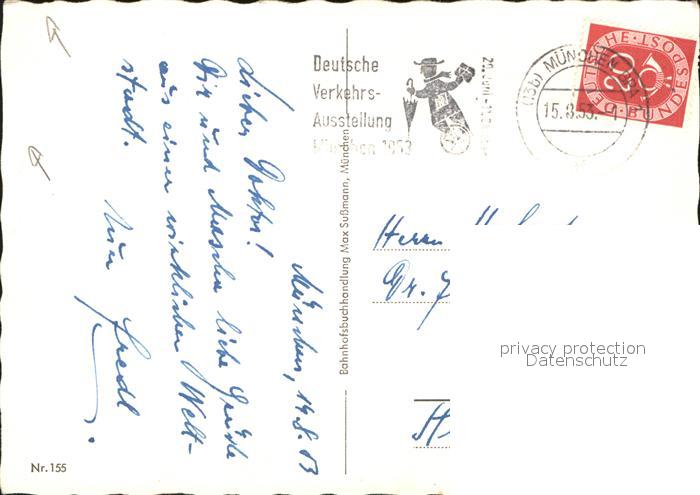 München, 14.8.53
Lieber
Dir und liebe Grüße
aus einer wirklichen Welt-
stadt.
Fredl
Bahnhofsbuchhandlung Max Sußmann, München
Nr. 155
Deutsche
Verkehrs-
Ausstellung
München 1953
(13b) MÜNCHEN
15.8.53.
DEUTSCHE BUNDESPOST
20
Herrn
Dr.
privacy protection
Datenschutz